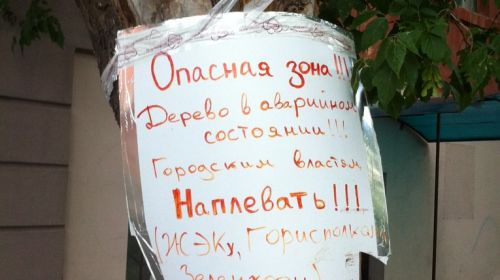 Опасная зона!!!
Дерево в аварийном
состоянии!!!
Городским властям
Наплевать!!!
(ЖЭКу, Горисполкому